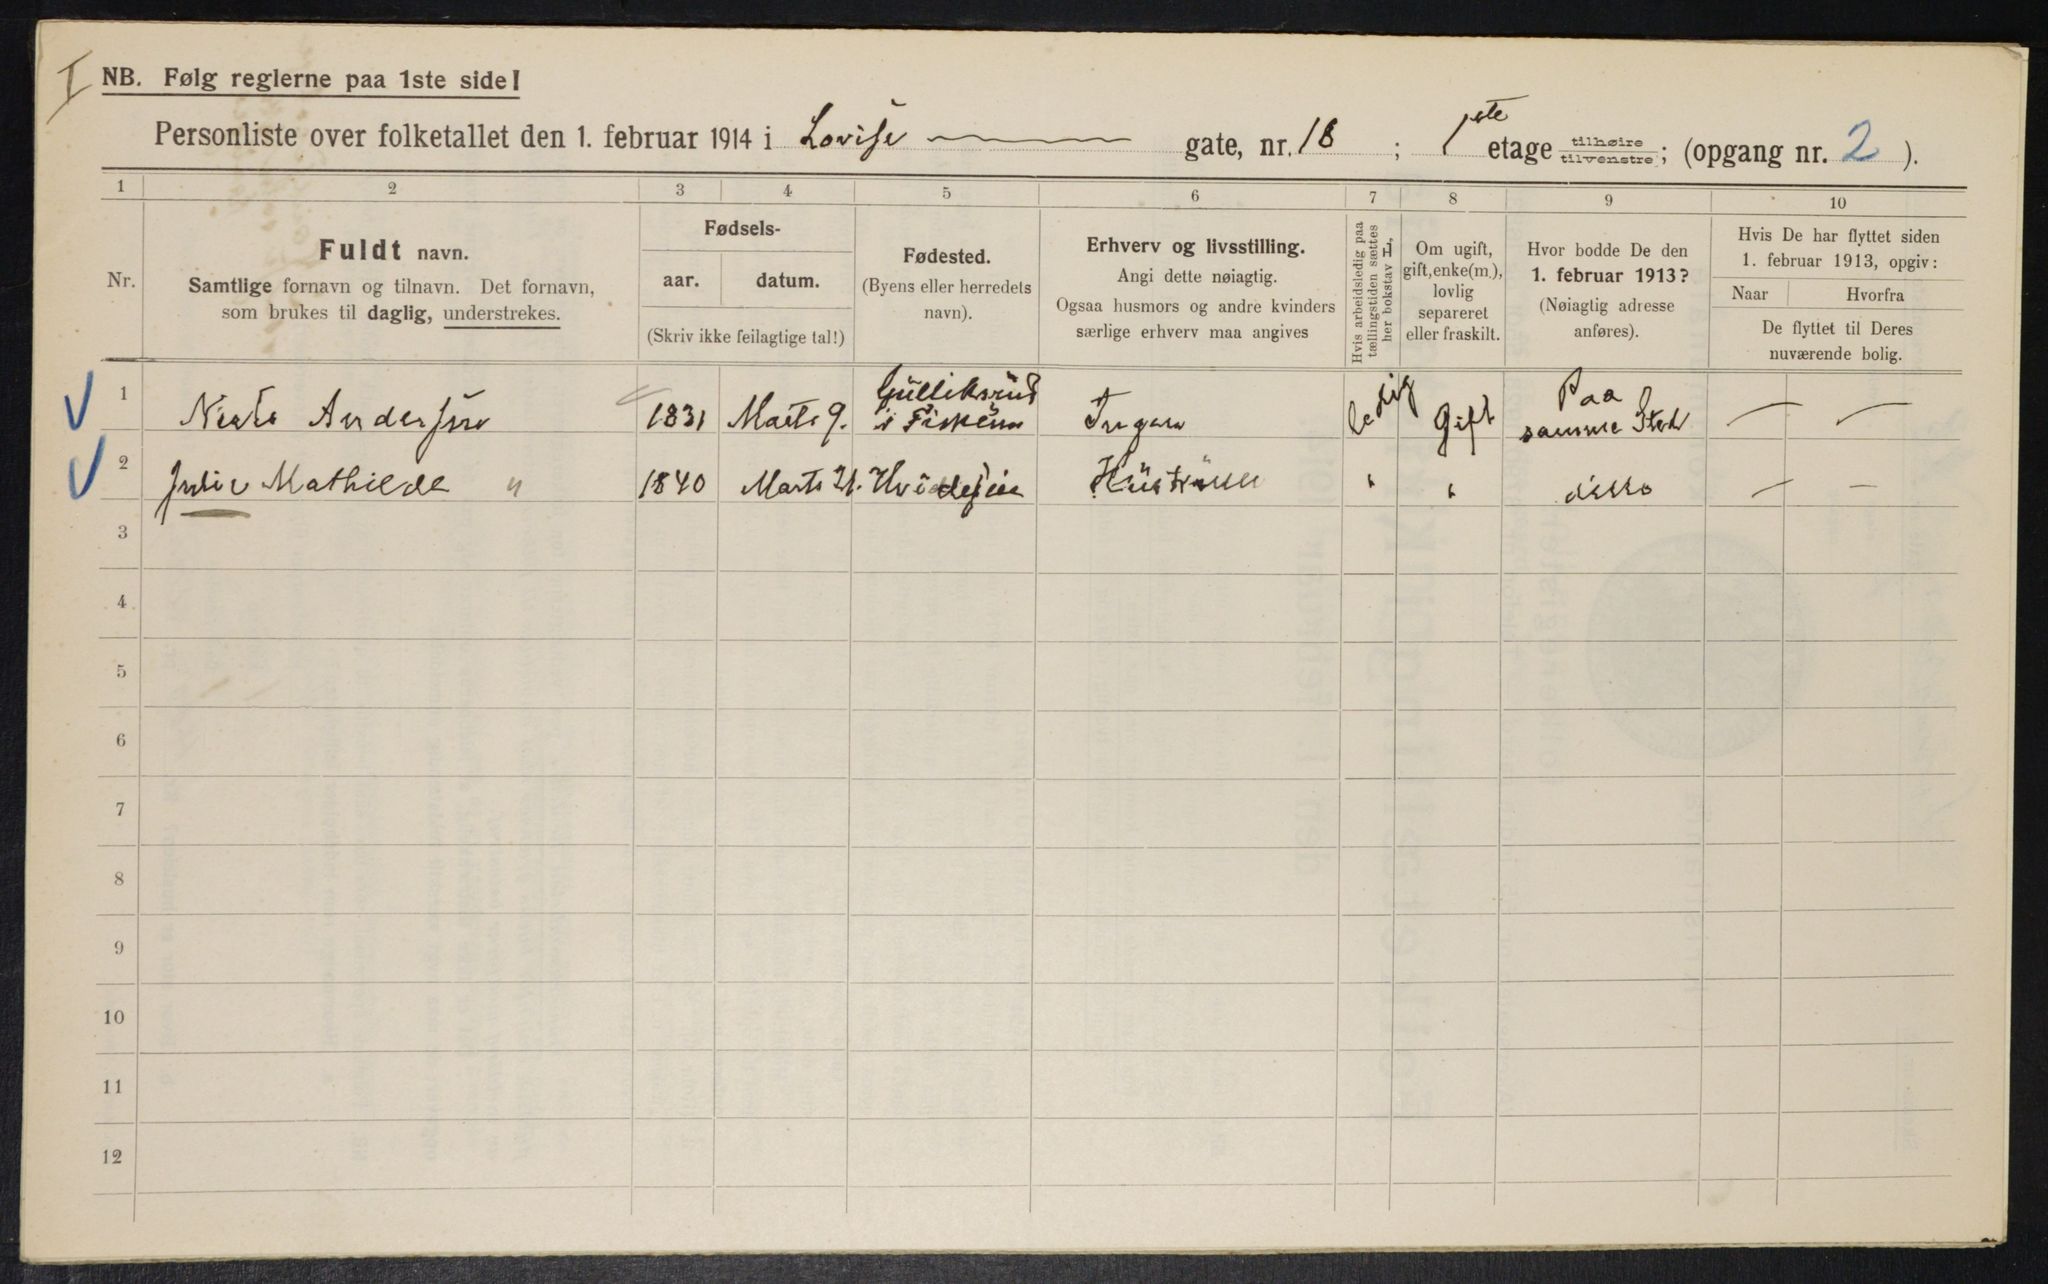 NB. Følg reglerne paa 1ste side!
Personliste over folketallet den 1. februar 1914 i Lovise gate, nr. 18 ; 1ste etage tilhøire tilvenstre; (opgang nr. 2 ).
1 2 3 4 5 6 7 8 9 10
Nr.
Fuldt navn.
Samtlige fornavn og tilnavn. Det fornavn,
som brukes til daglig, understrekes.
Fødsels-
aar. datum.
(Skriv ikke feilagtige tal!)
Fødested.
(Byens eller herredets
navn).
Erhverv og livsstilling.
Angi dette nøiagtig.
Ogsaa husmors og andre kvinders
særlige erhverv maa angives
Hvis arbeidsledig paa
tællingstiden sættes
her bokstav L.
Om ugift,
gift, enke(m.),
lovlig
separeret
eller fraskilt.
Hvor bodde De den
1. februar 1913?
(Nøiagtig adresse
anføres).
Hvis De har flyttet siden
1. februar 1913, opgiv:
Naar Hvorfra
De flyttet til Deres
nuværende bolig.
1 Anderssen 1831 Marts 9. Gulliksrud i Ingen ledig Gift Paa samme Sted — —
2 Julie Mathilde " 1840 Marts 21. Hvidesjee Hustruen " " ditto — —
3
4
5
6
7
8
9
10
11
12